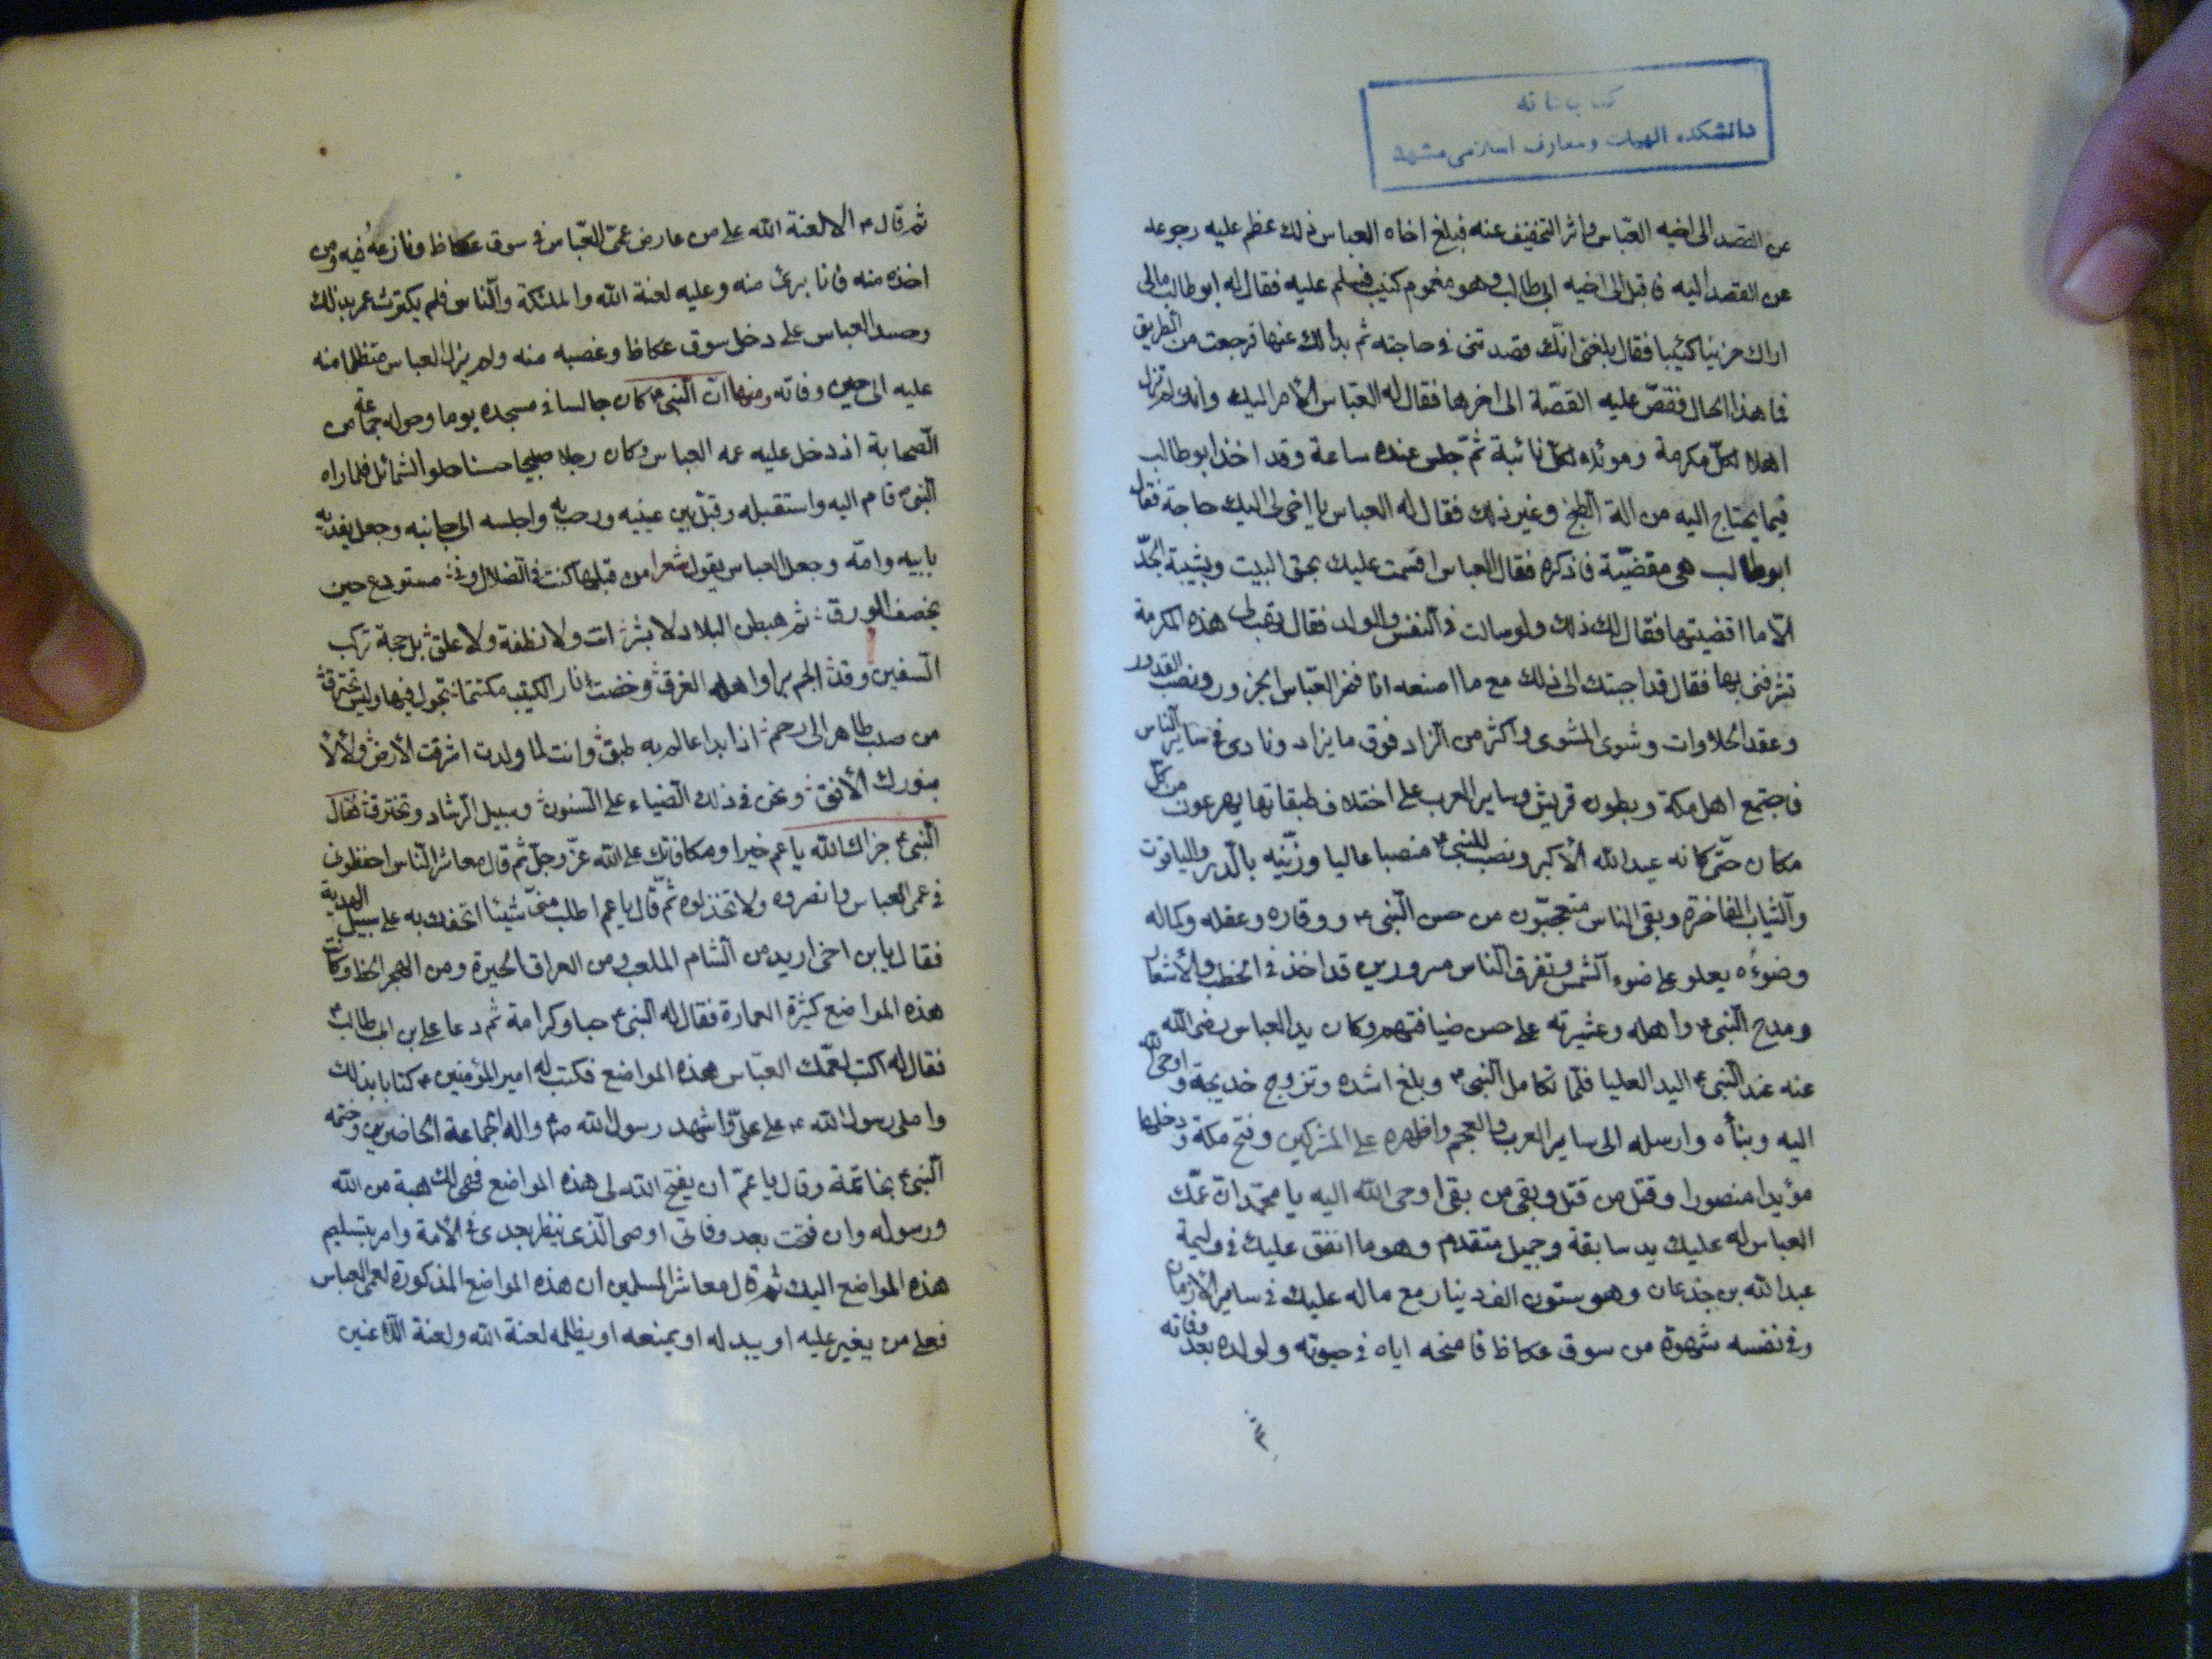 كتابخانه
دانشكده الهيات ومعارف اسلامى مشهد
عن القصد الى اخيه العبّاس واثر التخفيف عنه فبلغ اخاه العباس ذلك عظم عليه رجوعه
عن القصد اليه فاقبل الى اخيه ابى طالب وهو مغموم كئيب فسلم عليه فقال له ابو طالب مالى
اراك حزينا كئيبا فقال بلغنى انّك قصدتنى فى حاجته ثم بدا لك عنها فرجعت من الطريق
فما هذا الحال فقصّ عليه القصّة الى اخرها فقال له العبّاس الأمر اليك وانك لم تزل
اهلا لكلّ مكرمة وموئلا لكلّ نائبة ثمّ جلس عنده ساعة وقد اخذ ابو طالب
فيما يحتاج اليه من الة الطبخ وغير ذلك فقال له العباس يا اخى لى اليك حاجة فقال
ابو طالب هى مقضيّة فاذكرها فقال العباس اقسمت عليك بحق البيت وبشيبة الجدّ
الّا ما اقضيتها فقال لك ذلك ولو سالت فى النفس والولد فقال تهب لى هذه المكرمة
تشرفنى بها فقال قد اجبتك الى ذلك مع ما اصنعه انا فنحر العبّاس الجزور ونصب القدور
وعقد الحلاوات وشوى المشوى واكثر من الزاد فوق ما يراد ونادى فى ساير الناس
فاجتمع اهل مكة وبطون قريش وساير العرب على اختلاف طبقاتها يهرعون من كلّ
مكان حتّى كانه عيد الله الأكبر ونصب للنبى ص منصبا عاليا وزيّنه بالدّر والياقوت
والثياب الفاخرة وبقى الناس متعجّبون من حسن النّبى ص ووقاره وعقله وكماله
وضوءه يعلو على ضوء الشمس وتفرق الناس مسرورين قد اخذ فى الخطب والأشعار
ومدح النّبى ص واهله وعشيرته على حسن ضيافتهم وكان يد العباس رضى الله
عنه عند النّبى ص اليد العليا فلمّا تكامل النّبى ص وبلغ اشده وتزوج خديجة واوحى الله
اليه ونبأه وارسله الى ساير العرب والعجم واظهره على المشركين وفتح مكة ودخلها
مؤيدا منصورا وقتل من قتل وبقى من بقى اوحى الله اليه يا محمّد انّ عمّك
العباس له عليك يد سابقة وجميل متقدم وهو ما انفق عليك فى وليمة
عبد الله بن جذعان وهو ستون الف دينار مع ماله عليك فى ساير الأزمان
وفى نفسه شهوة من سوق عكاظ فامنحه اياه فى حيوته ولولده بعد وفاته
ثم قال ص الا لعنة الله على من عارض عمّى العبّاس فى سوق عكاظ ونازعه فيه ومن
اخذه منه فانا برئ منه وعليه لعنة الله والملئكة والنّاس فلم يكترث عمر بذلك
وحسد العباس على دخل سوق عكاظ وغصبه منه ولم يزل العباس متظلما منه
عليه الى حين وفاته ومنها انّ النّبى ص كان جالسا فى مسجده يوما وحوله جماعة من
الصّحابة اذ دخل عليه عمه العباس وكان رجلا صبيحا حسنا حلو الشمائل فلما راه
النّبى ص قام اليه واستقبله وقبّل بين عينيه ورحب به واجلسه الى جانبه وجعل يفديه
بابيه وامّه وجعل العباس يقول شعرا من قبلها كنت فى الضلال وفى مستودع حين
يخصف الورق ثم هبطن البلاد لا بشر انت ولا نطفة ولا علق بل حجة تركب
السفين وقد الجم نسرا واهله الغرق وخضت نار الكئيب مكتتما تجول فيها وليس تحترق
من صلب طاهر الى رحم اذا بدا عالم به طبق وانت لما ولدت اشرقت الأرض ولألأ
بنورك الأفق ونحن فى ذلك الضياء على السنون وسبيل الرشاد ونخترق فقال
النّبى ص جزاك الله يا عم خيرا ومكافاتك على الله عزّ وجلّ ثم قال معاشر النّاس احفظونى
فى عمى العباس وانصروه ولا تخذلوه ثمّ قال يا عم اطلب منّى شيئا اتحفك به على سبيل الهدية
فقال يا بن اخى اريد من الشام الملعب ومن العراق الحيرة ومن الهجر الخط وكانت
هذه المواضع كثيرة العمارة فقال له النّبى ص حبا وكرامة ثم دعا على بن ابى طالب ع
فقال له اكتب لعمّك العبّاس هذه المواضع فكتب له امير المؤمنين ع كتابا بذلك
واملى رسول الله ص على علىّ واشهد رسول الله ص واله الجماعة الحاضرين وختمه
النّبى ص بخاتمة وقال يا عمّ ان يفتح الله لى هذه المواضع فهى لك هبة من الله
ورسوله وان فتحت بعد وفاتى اوصى الّذى ينظر بعدى فى الأمة وامر بتسليم
هذه المواضع اليك ثم قال معاشر المسلمين ان هذه المواضع المذكورة لعمى العباس
فعلى من يغير عليه او يبدله او يمنعه او يظلمه لعنة الله ولعنة اللاعنين